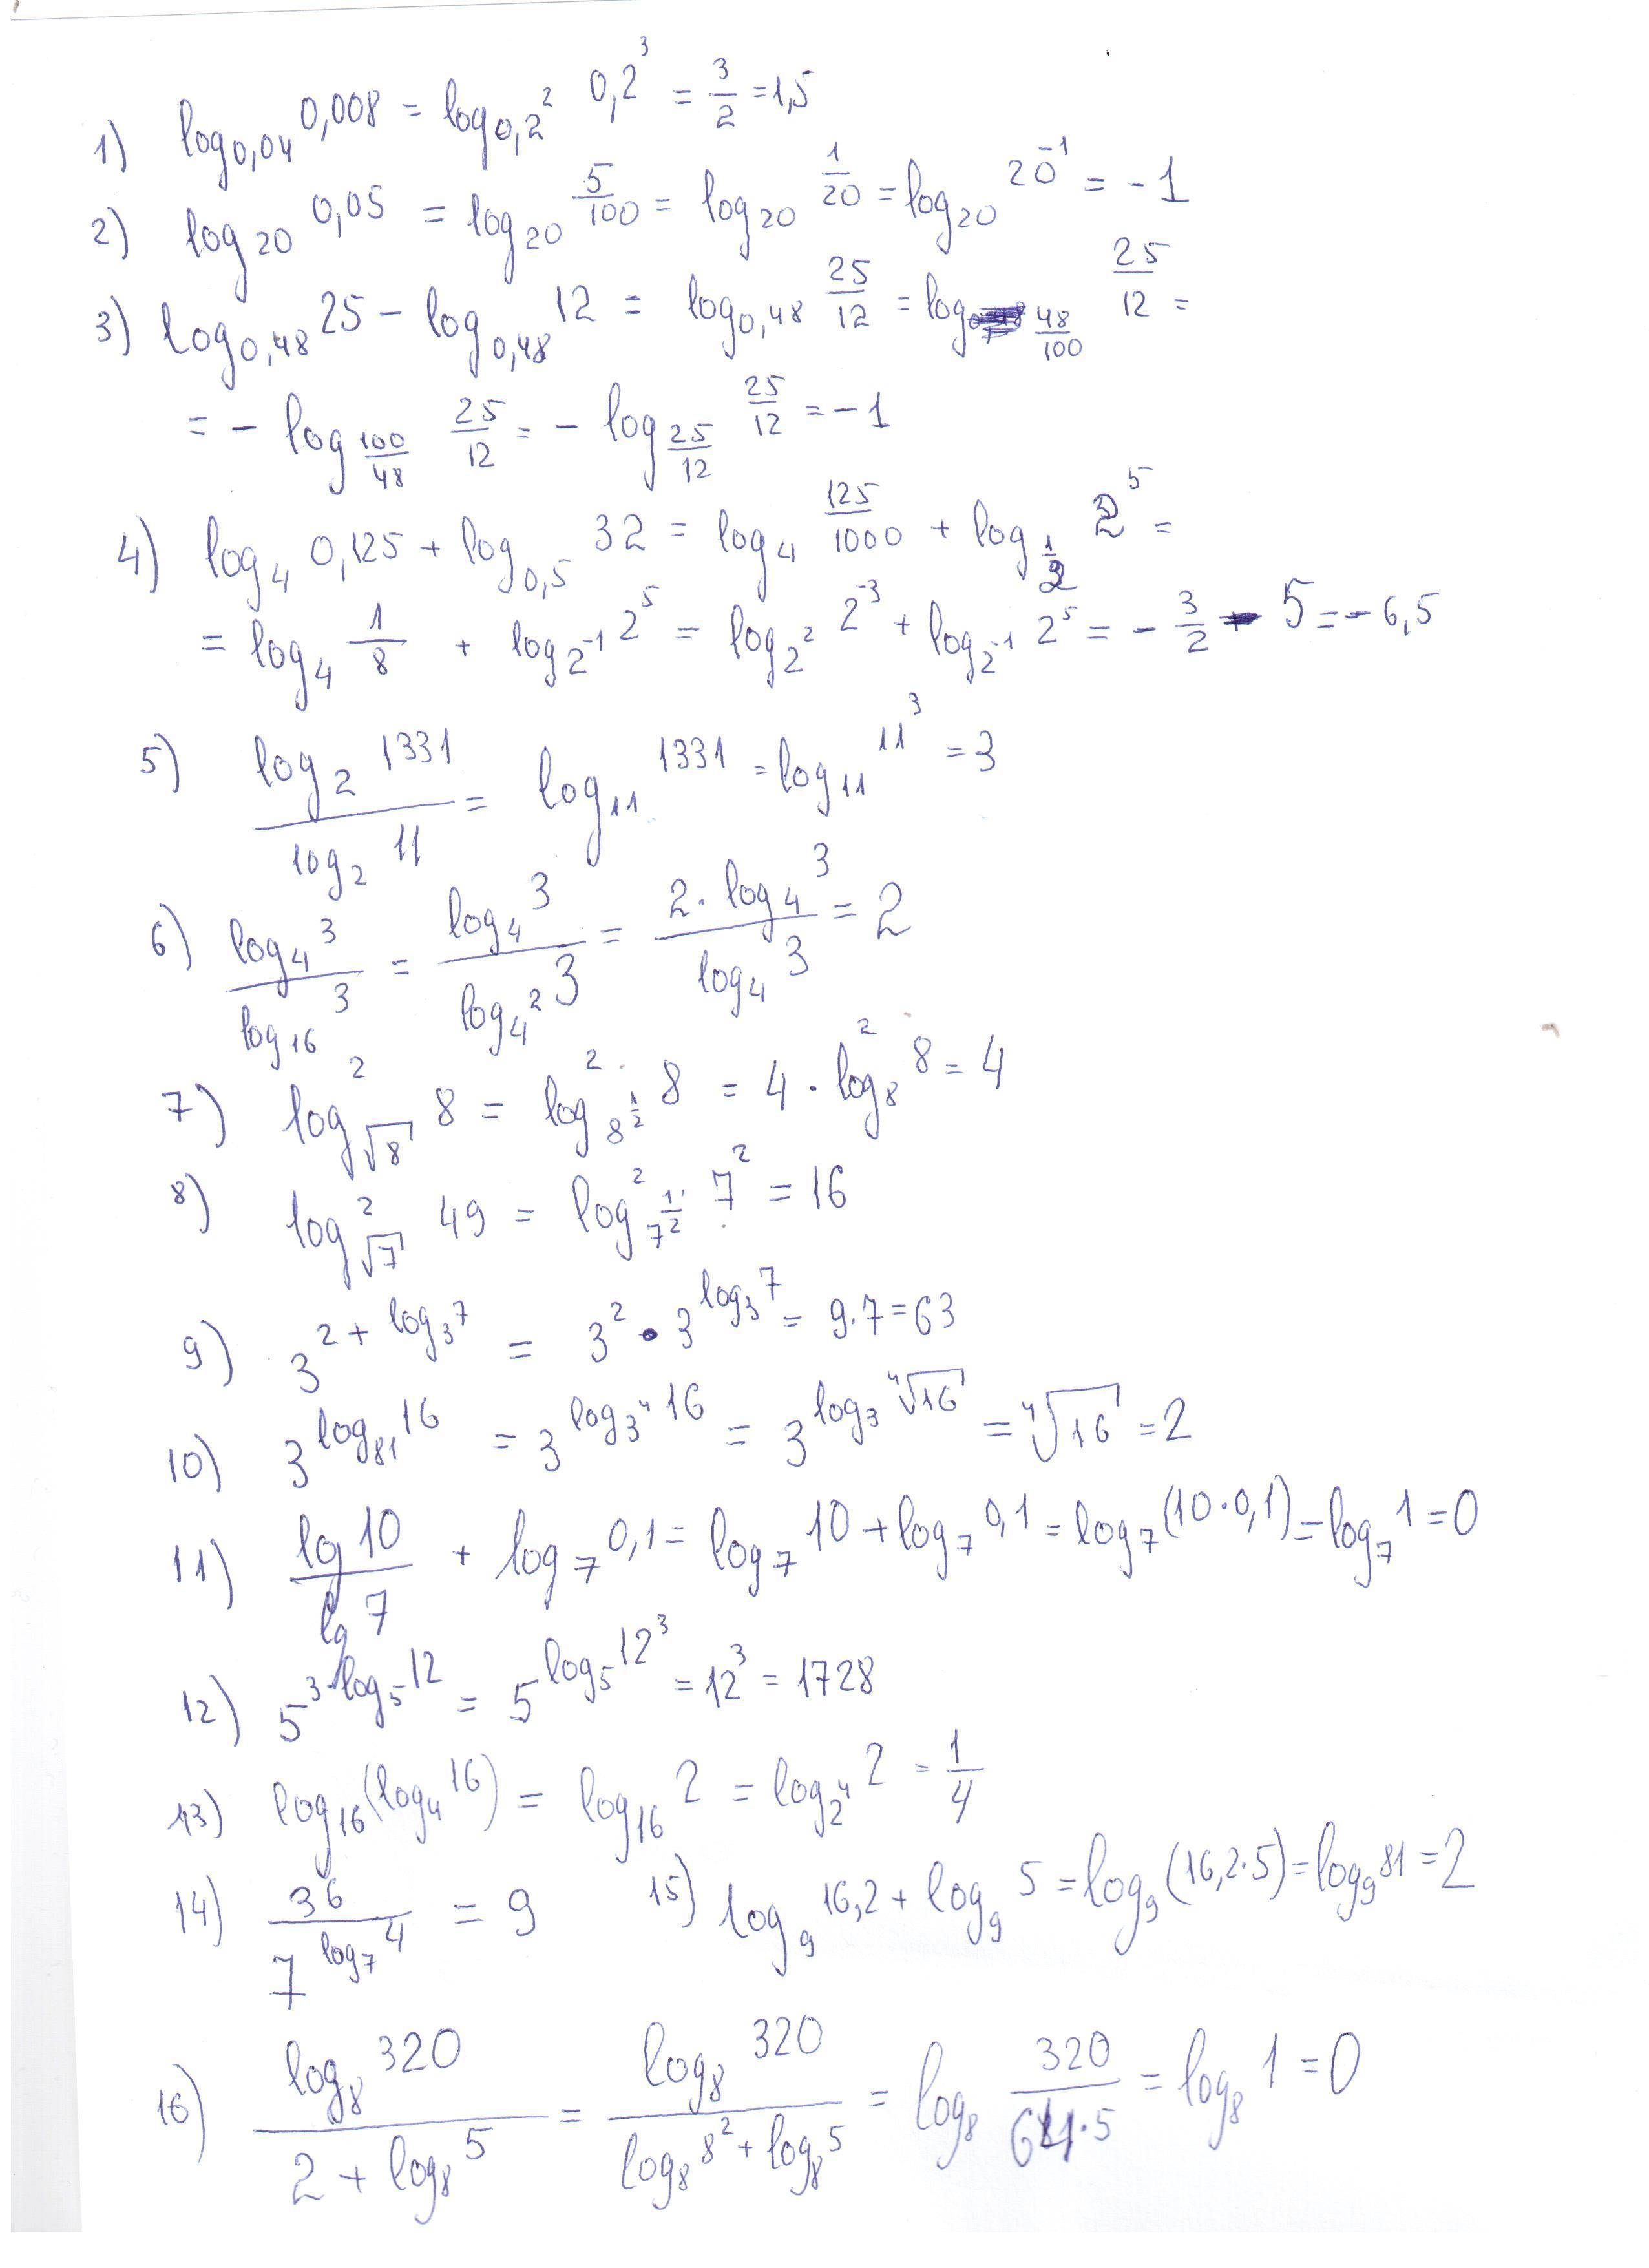 1) log_{0,04} 0,008 = log_{0,2^2} 0,2^3 = 3/2 = 1,5
2) log_{20} 0,05 = log_{20} 5/100 = log_{20} 1/20 = log_{20} 20^{-1} = -1
3) log_{0,48} 25 - log_{0,48} 12 = log_{0,48} 25/12 = log_{48/100} 25/12 =
= - log_{100/48} 25/12 = - log_{25/12} 25/12 = -1
4) log_4 0,125 + log_{0,5} 32 = log_4 125/1000 + log_{1/2} 2^5 =
= log_4 1/8 + log_{2^{-1}} 2^5 = log_{2^2} 2^{-3} + log_{2^{-1}} 2^5 = - 3/2 - 5 = - 6,5
5) log_2 1331 / log_2 11 = log_{11} 1331 = log_{11} 11^3 = 3
6) log_4 3 / log_{16} 3 = log_4 3 / log_{4^2} 3 = 2 · log_4 3 / log_4 3 = 2
7) log^2_{√8} 8 = log^2_{8^{1/2}} 8 = 4 · log^2_8 8 = 4
8) log^2_{√7} 49 = log^2_{7^{1/2}} 7^2 = 16
9) 3^{2 + log_3 7} = 3^2 · 3^{log_3 7} = 9·7 = 63
10) 3^{log_{81} 16} = 3^{log_{3^4} 16} = 3^{log_3 ⁴√16} = ⁴√16 = 2
11) log 10 / lg 7 + log_7 0,1 = log_7 10 + log_7 0,1 = log_7 (10·0,1) = log_7 1 = 0
12) 5^{3·log_5 12} = 5^{log_5 12^3} = 12^3 = 1728
13) log_{16} (log_4 16) = log_{16} 2 = log_{2^4} 2 = 1/4
14) 36 / 7^{log_7 4} = 9 15) log_9 16,2 + log_9 5 = log_9 (16,2·5) = log_9 81 = 2
16) log_8 320 / 2 + log_8 5 = log_8 320 / log_8 8^2 + log_8 5 = log_8 320 / 64·5 = log_8 1 = 0